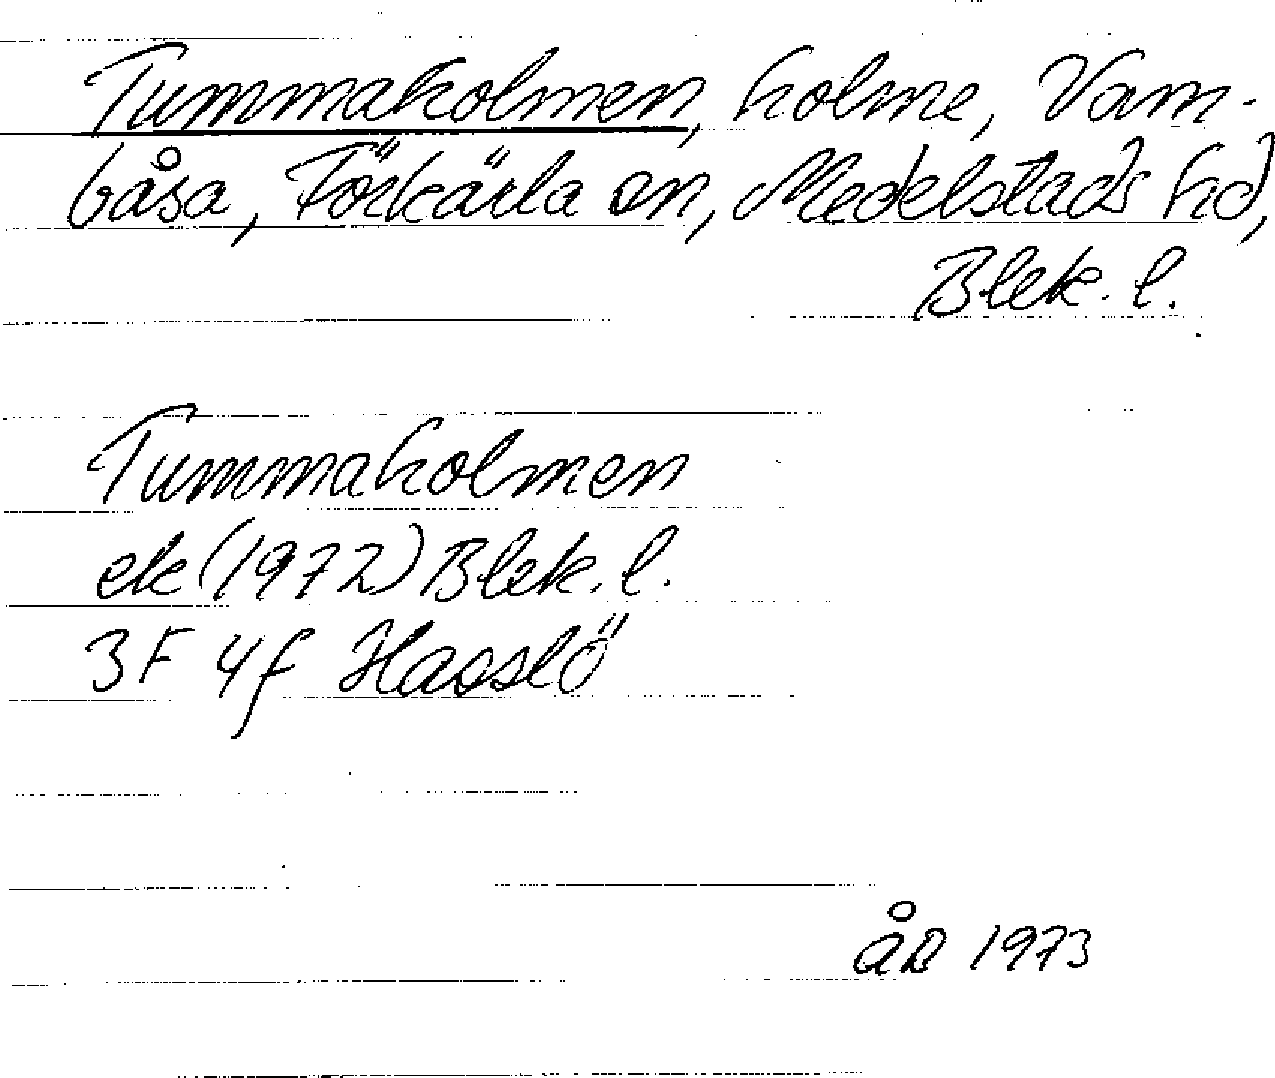 Tummaholmen, holme, Vam-
båsa, Förkärla sn, Medelstads hd,
Blek. l.
Tummaholmen
ek (1972) Blek. l.
3F 4f Hasslö
ÅB 1973